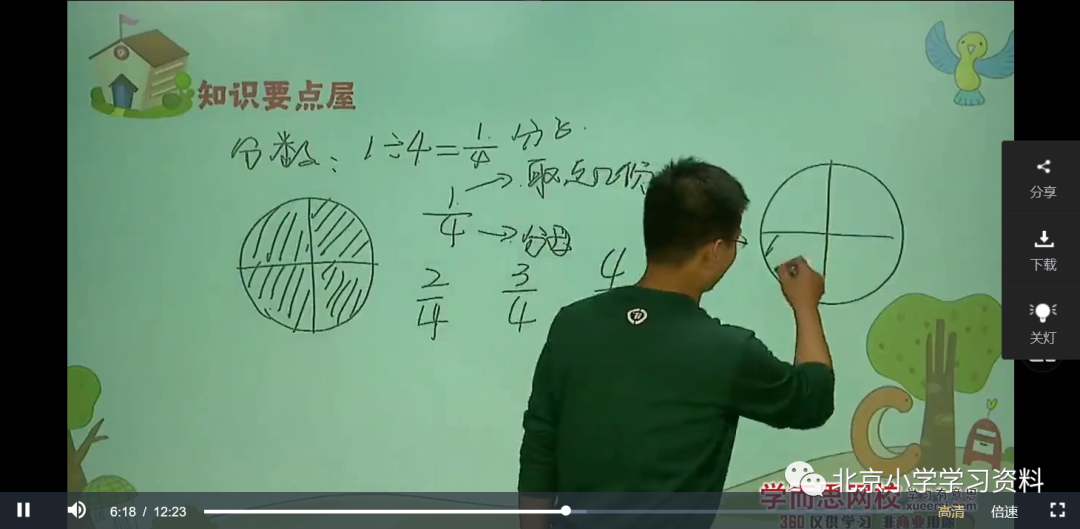 知识要点屋
分数: 1÷4=1/4
1/4 → 取
→ 分母
2/4 3/4 4
分享
下载
关灯
北京小学学习资料
学而思网校
xueersi.com
360 仅供学习 非商业用途
6:18 / 12:23
高清
倍速